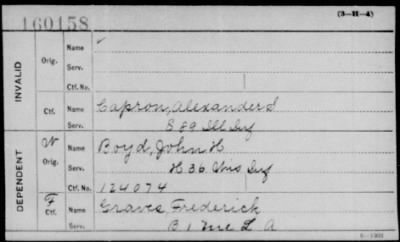 160158
(3-H-4)
INVALID
Orig. Name ✓
Serv.
Ctf. No.
Ctf. Name Capron, Alexander S
Serv. E 89 Ill Inf
DEPENDENT
W Orig. Name Boyd, John H
Serv. H 36 Ohio Inf
Ctf. No. 124074
F Ctf. Name Graves, Frederick
Serv. B 1 Me L A